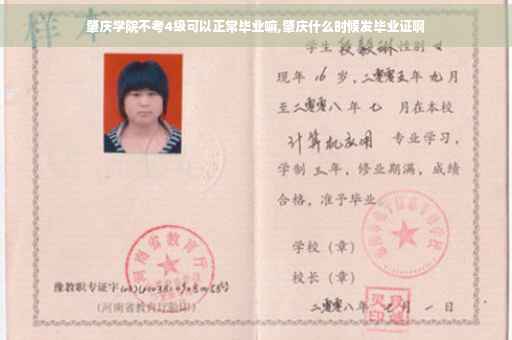 肇庆学院不考4级可以正常毕业嘛,肇庆什么时候发毕业证啊
样本
学生 段毅琳 性别 女
现年 16 岁，二零零五年 九月
至二零零八年 七 月在本校
计算机应用 专业学习，
学制 三年，修业期满，成绩
合格，准予毕业
学校（章）
校长（章）
二零零八年 七 月 一 日
河南省教育厅
豫教职专证字
（河南省教育厅验印）